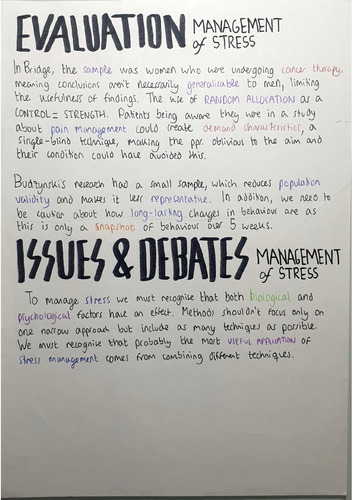 EVALUATION MANAGEMENT
of STRESS
In Bridge, the sample was women who were undergoing cancer therapy,
meaning conclusions aren't necessarily generalisable to men, limiting
the usefulness of findings. The use of RANDOM ALLOCATION as a
CONTROL = STRENGTH. Patients being aware they were in a study
about pain management could create demand characteristics, a
single-blind technique, making the ppt. oblivious to the aim and
their condition could have avoided this.
Budzynski's research had a small sample, which reduces population
validity and makes it less representative. In addition, we need to
be cautious about how long-lasting changes in behaviour are as
this is only a snapshot of behaviour over 5 weeks.
ISSUES & DEBATES MANAGEMENT
of STRESS
To manage stress we must recognise that both biological and
psychological factors have an effect. Methods shouldn't focus only on
one narrow approach but include as many techniques as possible.
We must recognise that probably the most USEFUL APPLICATION of
stress management comes from combining different techniques.